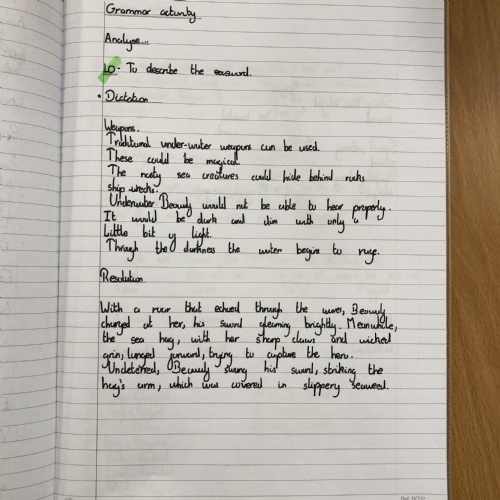 Grammar activity
Analyse...
LO- To describe the seaword.
• Dictation
Weapons.
Traditional under-water weapons can be used.
These could be magical
The nasty sea creatures could hide behind rocks
ship-wrecks.
Underwater Beowulf would not be able to hear properly.
It would be dark and dim with only a
little bit of light.
Through the darkness the water begins to rage.
Resolution
With a roar that echoed through the waves, Beowulf
charged at her, his sword gleaming brightly. Meanwhile,
the sea hag, with her sharp claws and wicked
grin, lunged forward, trying to capture the hero.
Undeterred, Beowulf swung his sword, striking the
hag's arm, which was covered in slippery seaweed.